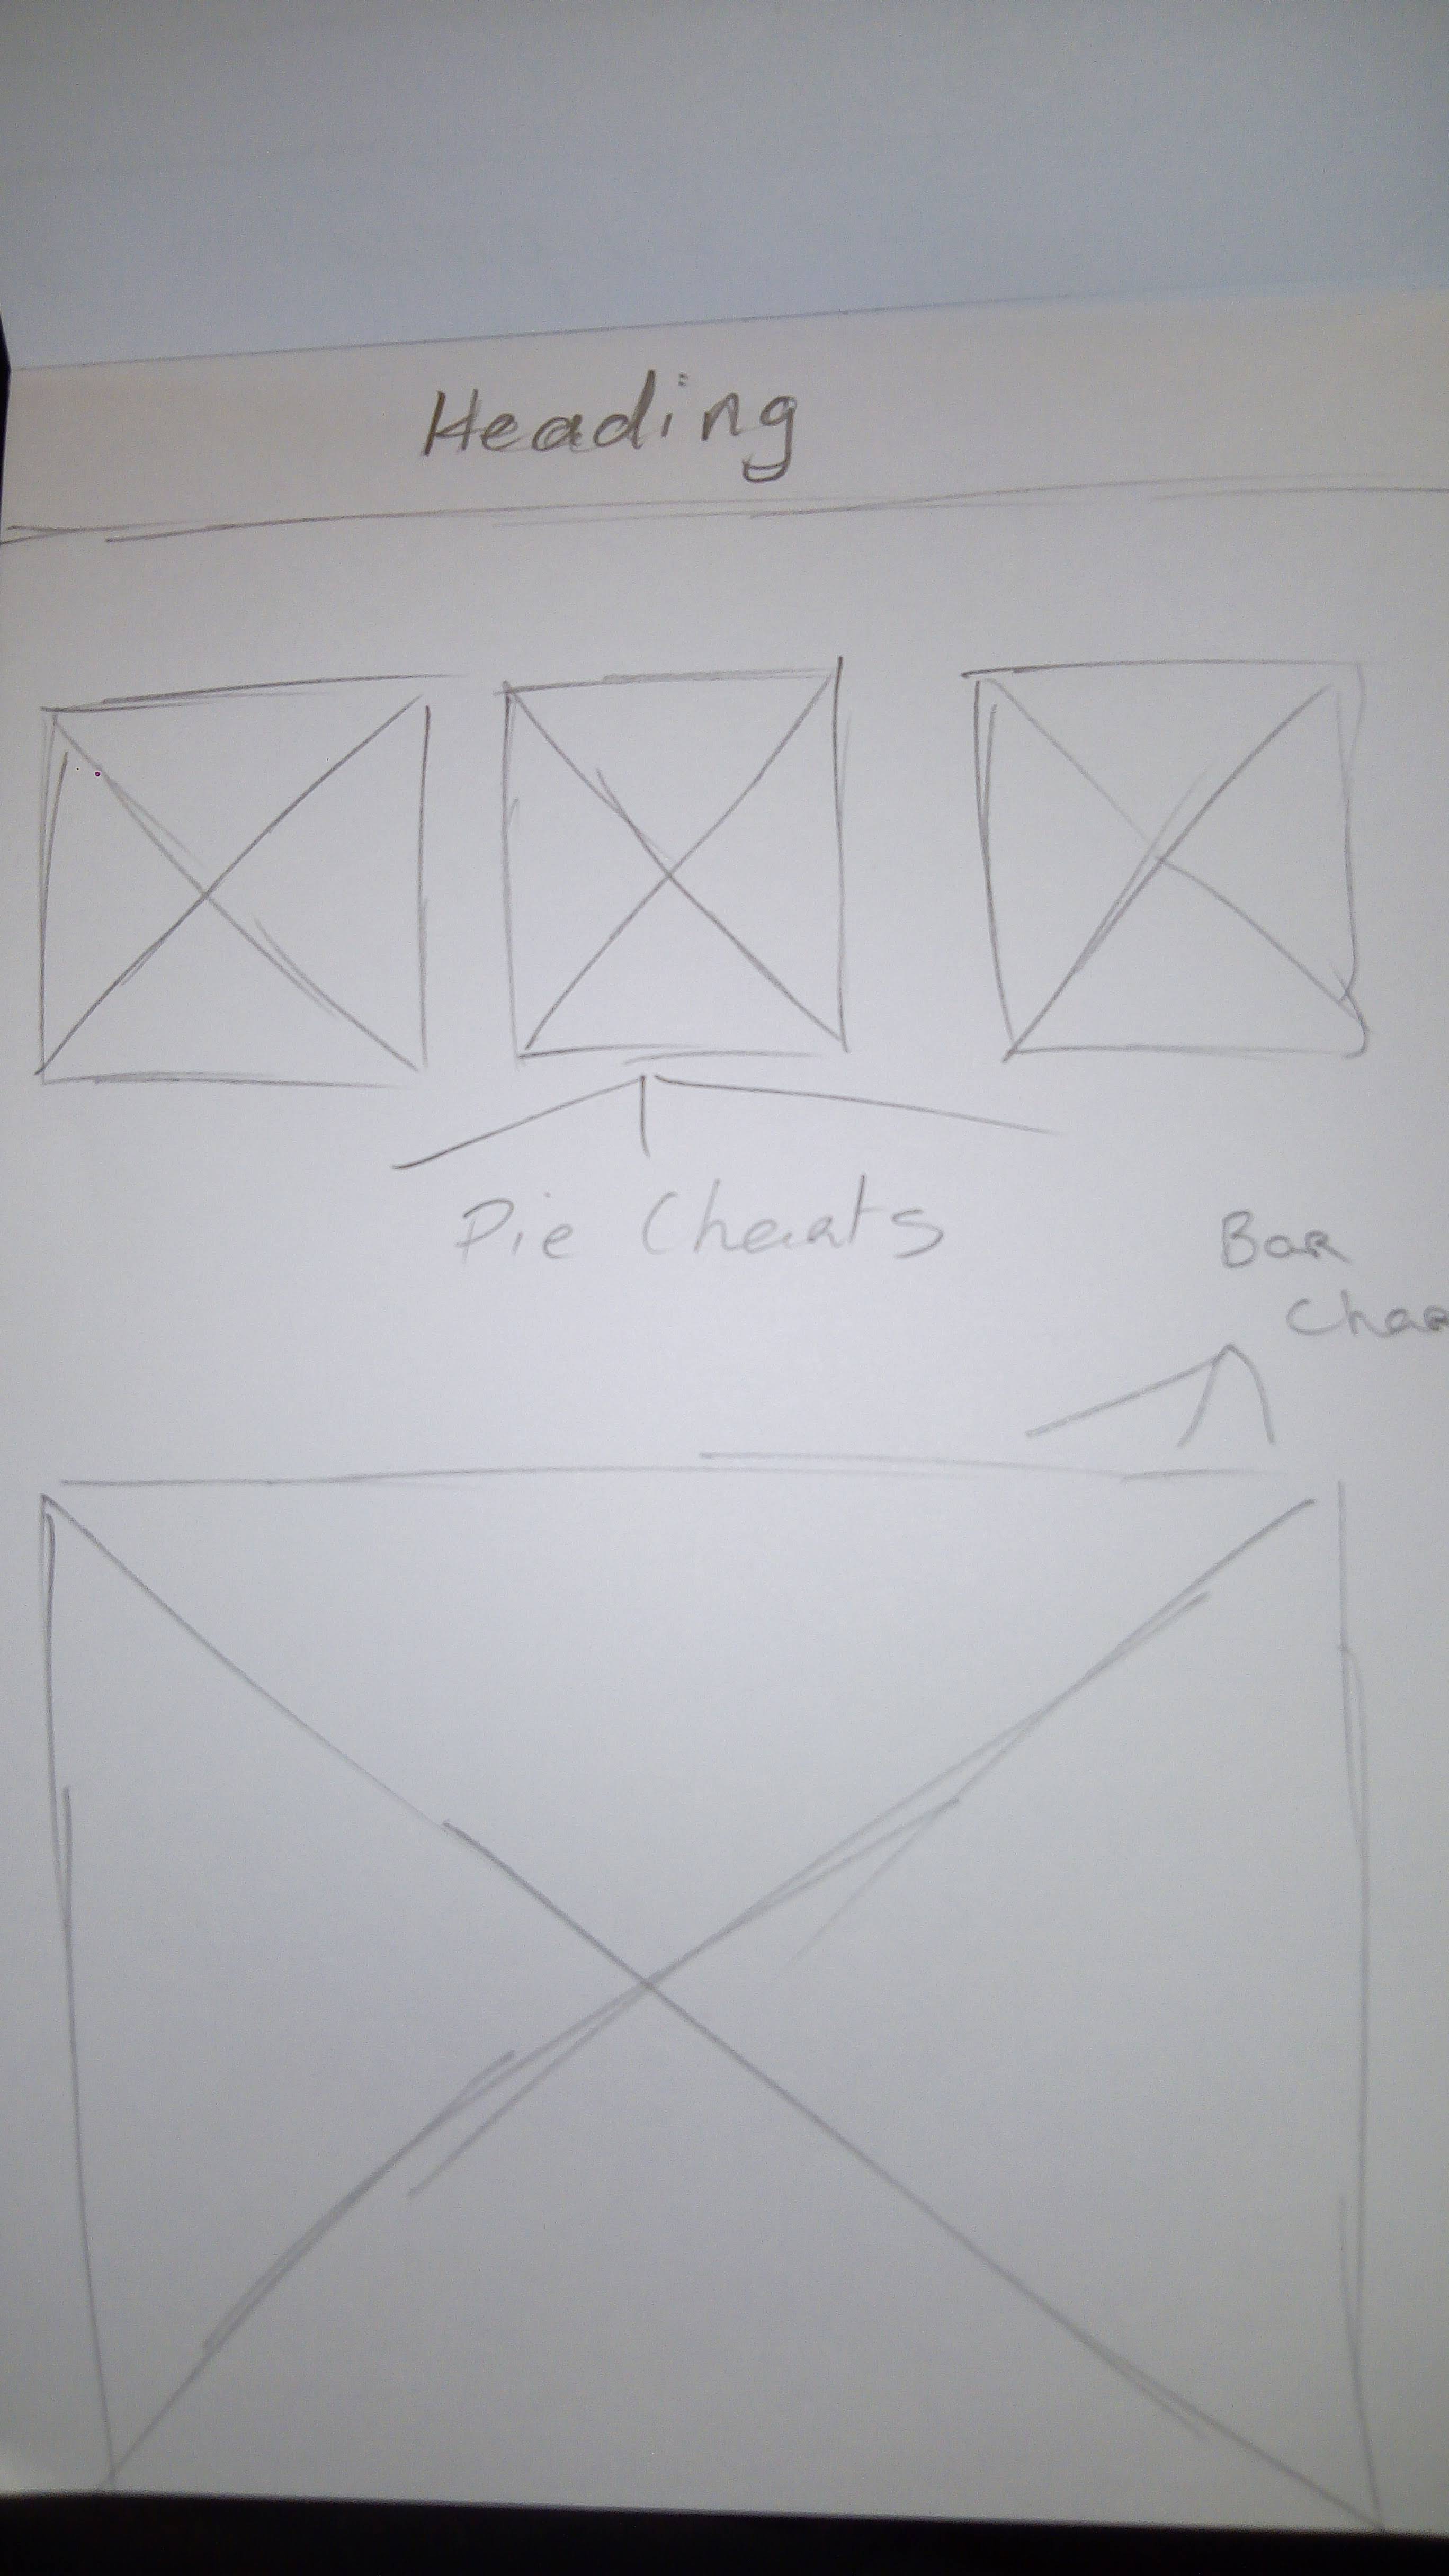 Heading
Pie Charts
Bar
Char